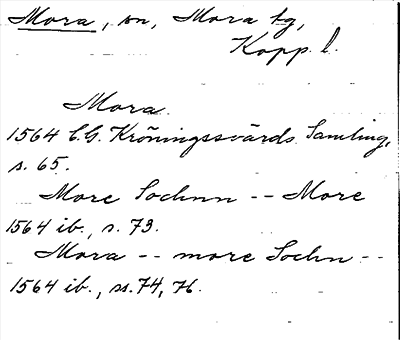 Mora, sn, Mora tg,
Kopp. l.
Mora
1564 C.G. Kröningssvärds Samling,
s. 65.
More Sochnn -- More
1564 ib., s. 73.
Mora -- more Sochn --
1564 ib., ss. 74, 76.